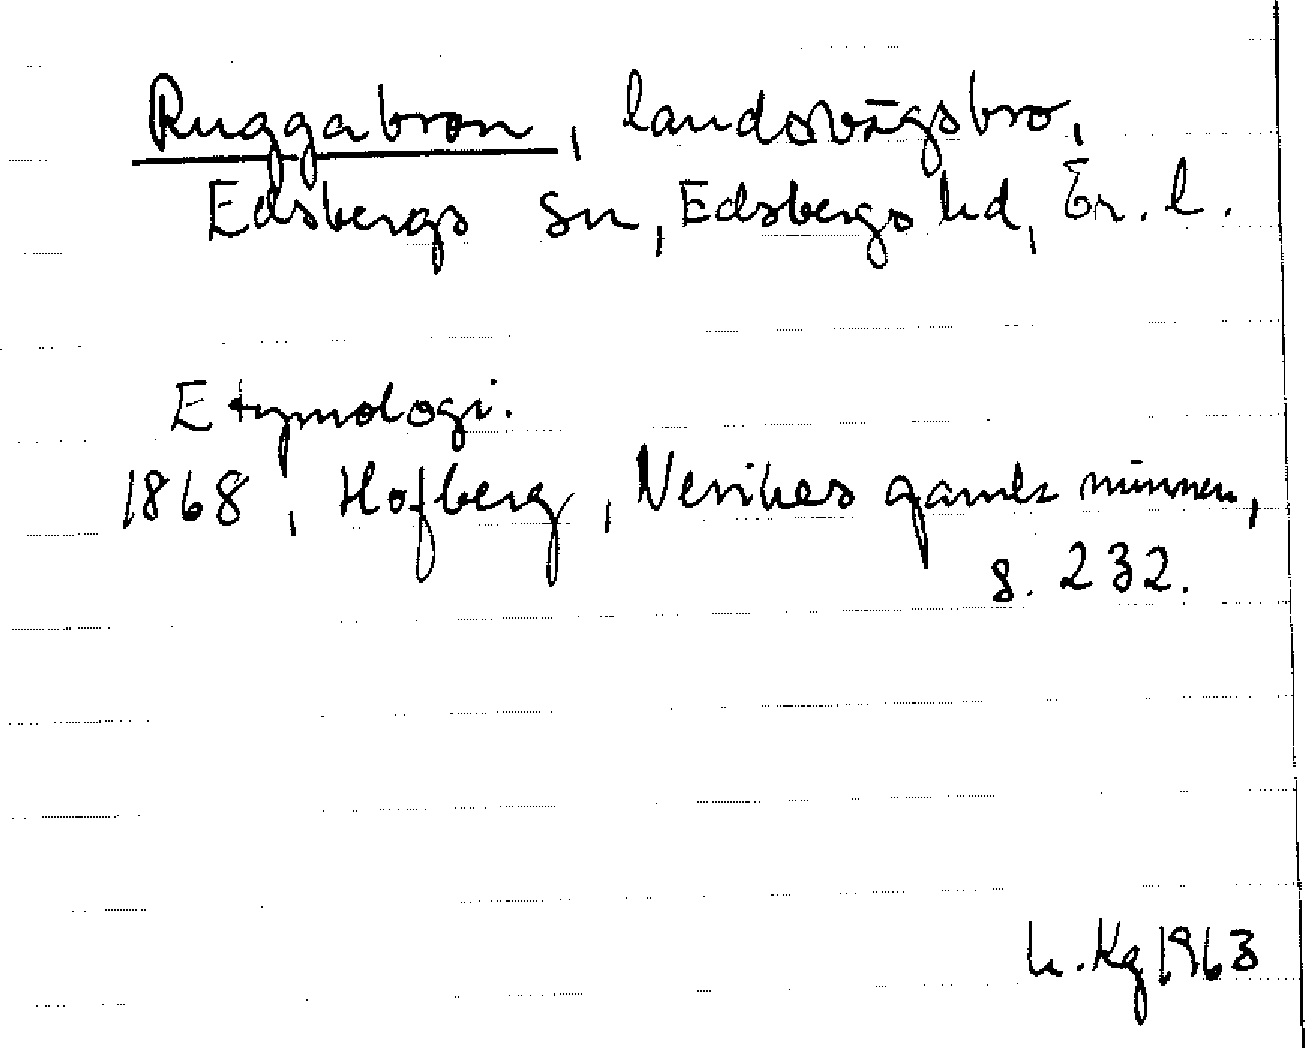 Ruggabron, landsvägsbro,
Edsbergs sn, Edsbergs hd, Ör. l.
Etymologi.
1868, Hofberg, Nerikes gamla minnen,
s. 232.
Kg 1963